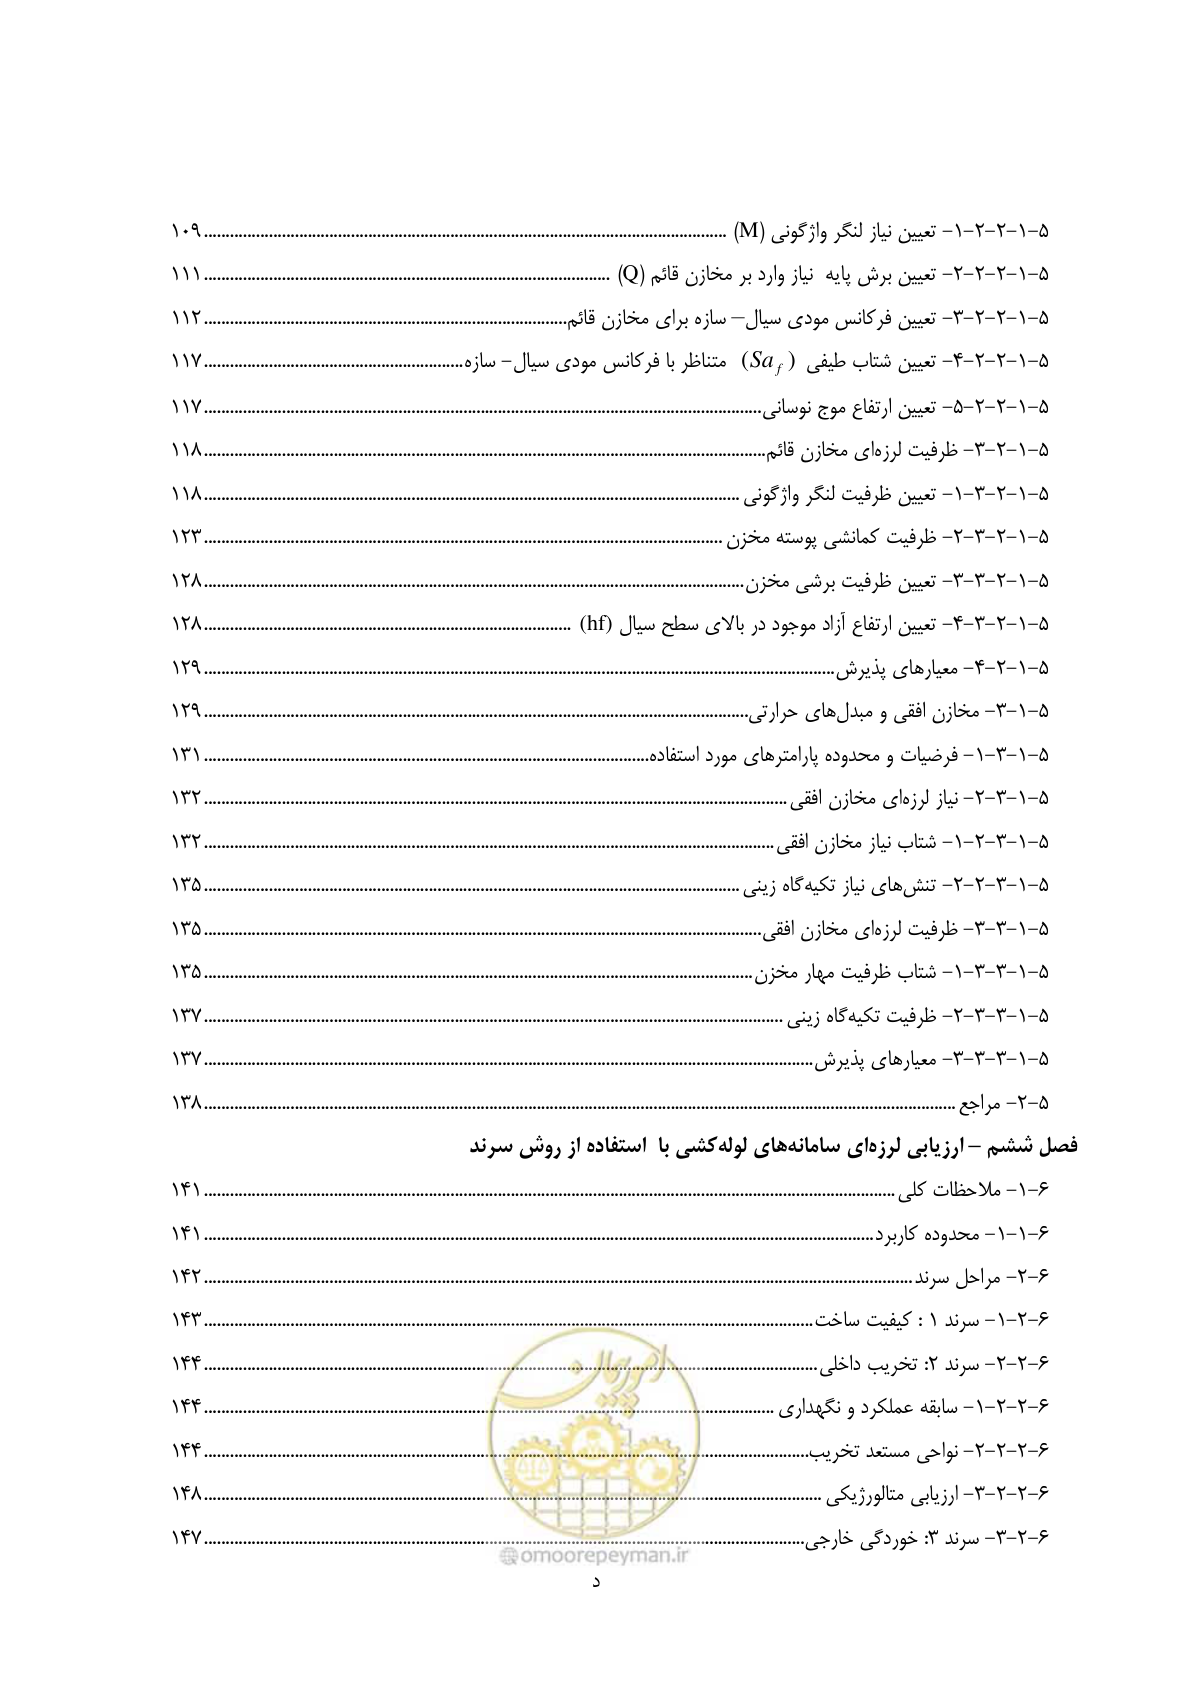 ۵-۱-۲-۲-۱- تعیین نیاز لنگر واژگونی (M) ........ ۱۰۹
۵-۱-۲-۲-۲- تعیین برش پایه نیاز وارد بر مخازن قائم (Q) ........ ۱۱۱
۵-۱-۲-۲-۳- تعیین فرکانس مودی سیال– سازه برای مخازن قائم ........ ۱۱۲
۵-۱-۲-۲-۴- تعیین شتاب طیفی (Sa_f) متناظر با فرکانس مودی سیال- سازه ........ ۱۱۷
۵-۱-۲-۲-۵- تعیین ارتفاع موج نوسانی ........ ۱۱۷
۵-۱-۲-۳- ظرفیت لرزه‌ای مخازن قائم ........ ۱۱۸
۵-۱-۲-۳-۱- تعیین ظرفیت لنگر واژگونی ........ ۱۱۸
۵-۱-۲-۳-۲- ظرفیت کمانشی پوسته مخزن ........ ۱۲۳
۵-۱-۲-۳-۳- تعیین ظرفیت برشی مخزن ........ ۱۲۸
۵-۱-۲-۳-۴- تعیین ارتفاع آزاد موجود در بالای سطح سیال (hf) ........ ۱۲۸
۵-۱-۲-۴- معیارهای پذیرش ........ ۱۲۹
۵-۱-۳- مخازن افقی و مبدل‌های حرارتی ........ ۱۲۹
۵-۱-۳-۱- فرضیات و محدوده پارامترهای مورد استفاده ........ ۱۳۱
۵-۱-۳-۲- نیاز لرزه‌ای مخازن افقی ........ ۱۳۲
۵-۱-۳-۲-۱- شتاب نیاز مخازن افقی ........ ۱۳۲
۵-۱-۳-۲-۲- تنش‌های نیاز تکیه‌گاه زینی ........ ۱۳۵
۵-۱-۳-۳- ظرفیت لرزه‌ای مخازن افقی ........ ۱۳۵
۵-۱-۳-۳-۱- شتاب ظرفیت مهار مخزن ........ ۱۳۵
۵-۱-۳-۳-۲- ظرفیت تکیه‌گاه زینی ........ ۱۳۷
۵-۱-۳-۳-۳- معیارهای پذیرش ........ ۱۳۷
۵-۲- مراجع ........ ۱۳۸
فصل ششم – ارزیابی لرزه‌ای سامانه‌های لوله‌کشی با استفاده از روش سرند
۶-۱- ملاحظات کلی ........ ۱۴۱
۶-۱-۱- محدوده کاربرد ........ ۱۴۱
۶-۲- مراحل سرند ........ ۱۴۲
۶-۲-۱- سرند ۱ : کیفیت ساخت ........ ۱۴۳
۶-۲-۲- سرند ۲: تخریب داخلی ........ ۱۴۴
۶-۲-۲-۱- سابقه عملکرد و نگهداری ........ ۱۴۴
۶-۲-۲-۲- نواحی مستعد تخریب ........ ۱۴۴
۶-۲-۲-۳- ارزیابی متالورژیکی ........ ۱۴۸
۶-۲-۳- سرند ۳: خوردگی خارجی ........ ۱۴۷
امور پیمان
@omoorepeyman.ir
د